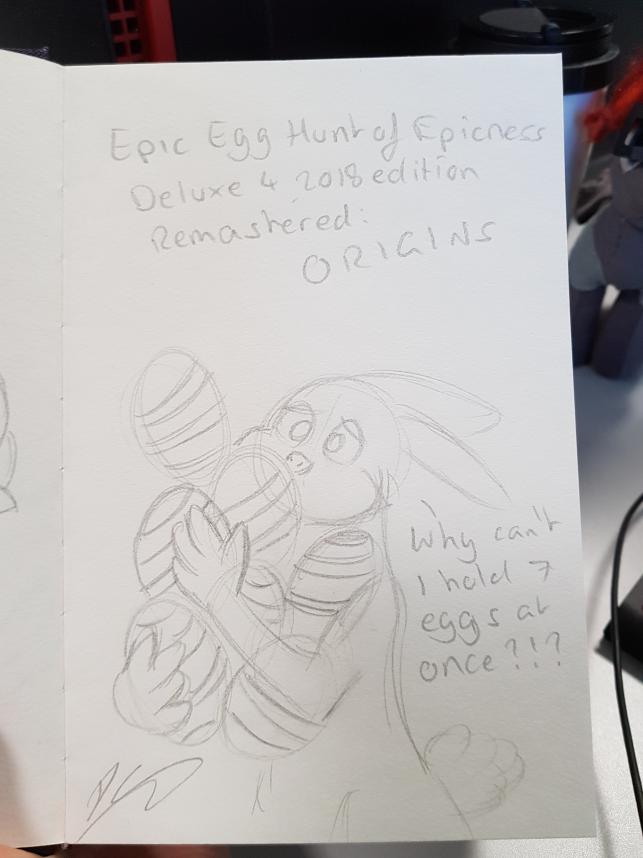 Epic Egg Hunt of Epicness
Deluxe 4 2018 edition
Remastered:
ORIGINS
Why can't
I hold 7
eggs at
once?!?